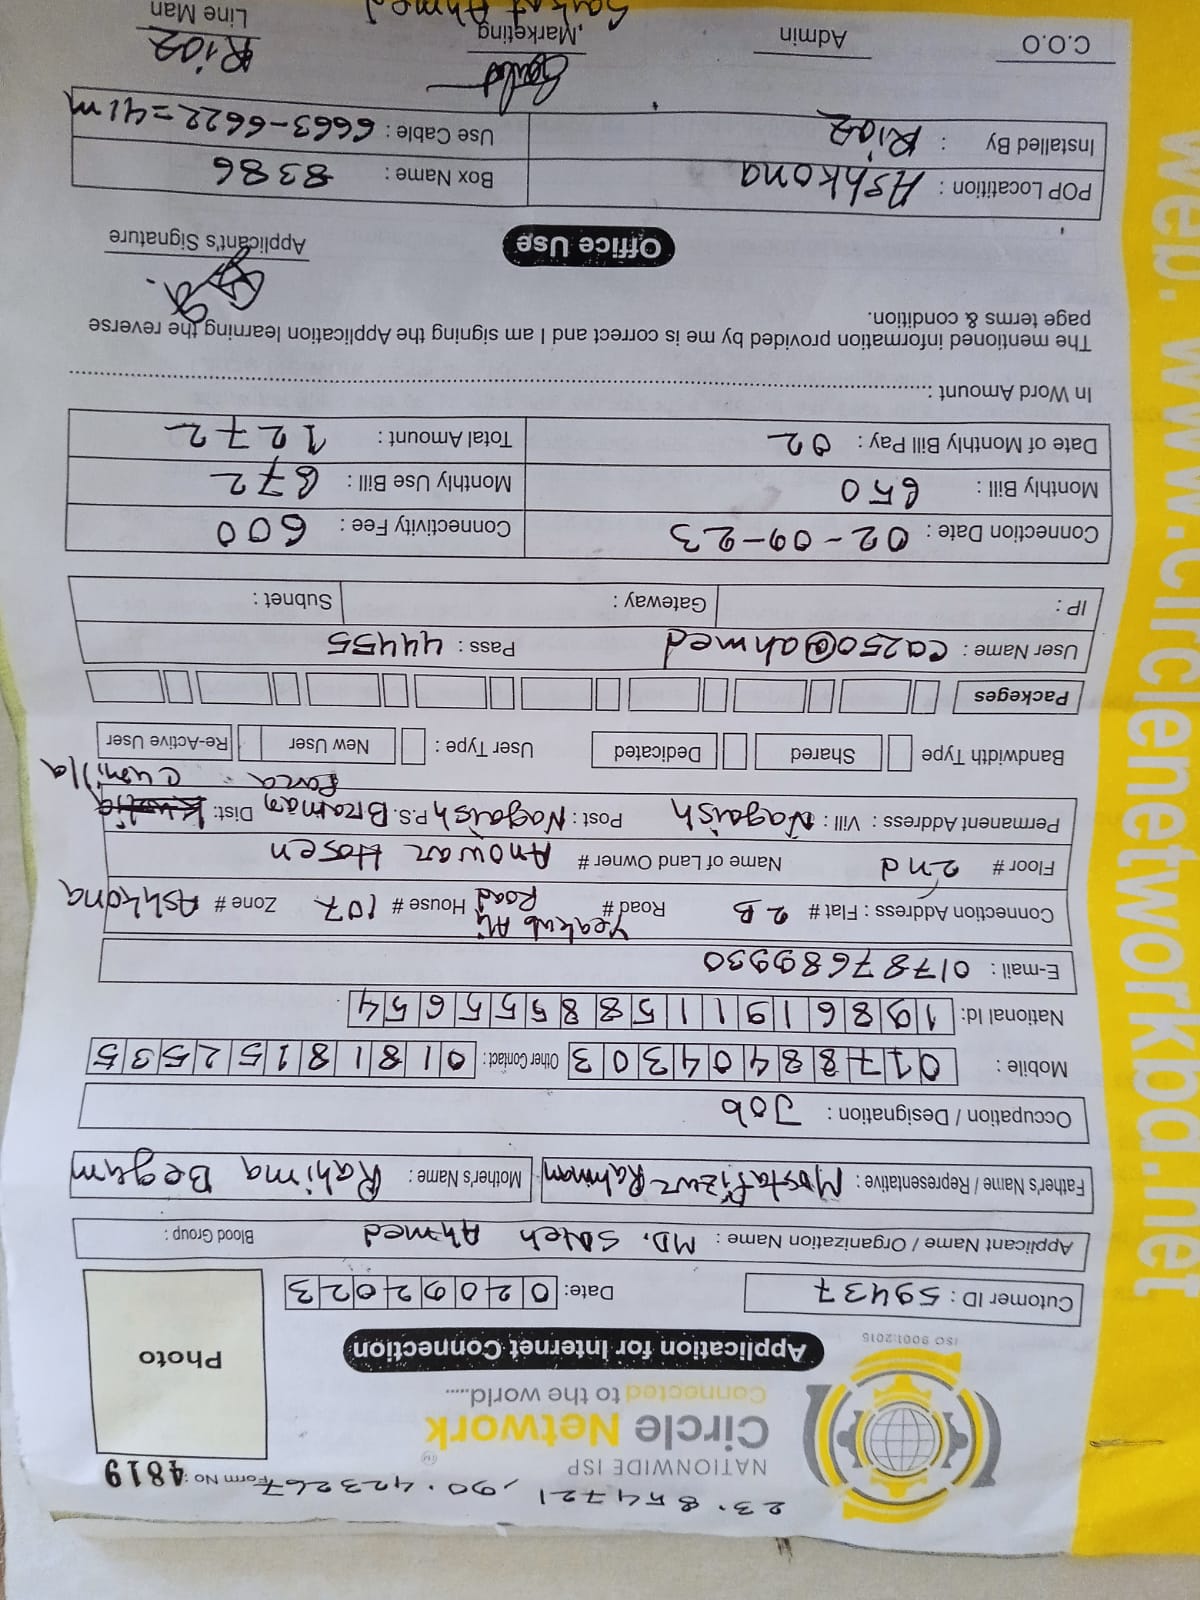 23.854721, 90.423267 Form No : 4819
NATIONWIDE ISP
Circle Network
Connected to the world.....
ISO 9001:2015
Application for Internet Connection
Photo
Cutomer ID : 59437
Date: 02092023
Applicant Name / Organization Name : MD. Saleh Ahmed
Blood Group :
Father's Name / Representative : Mostafizur Rahman
Mother's Name : Rahima Begum
Occupation / Designation : Job
Mobile : 01788404303
Other Contact : 01818152535
National Id: 19861911588555654
E-mail : 01787689930
Connection Address : Flat # 2B Road # Yeakub Ali Road House # 107 Zone # Ashkona
Floor # 2nd Name of Land Owner # Anowar Hosen
Permanent Address : Vill : Nagaish Post : Nagaish P.S. Braman Para Dist: Cumilla
Bandwidth Type Shared Dedicated User Type : New User Re-Active User
Packeges
User Name : ca250@ahmed Pass : 44455
IP : Gateway : Subnet :
Connection Date : 02-09-23 Connectivity Fee : 600
Monthly Bill : 650 Monthly Use Bill : 672
Date of Monthly Bill Pay : 02 Total Amount : 1272
In Word Amount :
The mentioned information provided by me is correct and I am signing the Application learning the reverse
page terms & condition.
Applicant's Signature
Office Use
POP Locatition : Ashkona Box Name : 8386
Installed By : Riaz Use Cable : 6663-6622=41m
Riaz
C.O.O Admin Marketing Line Man
Ahmed
web: www.circlenetworkbd.net